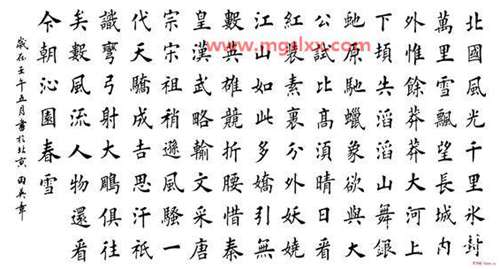 北國風光千里氷封
萬里雪飄望長城内
外惟餘莽莽大河上
下頓失滔滔山舞銀
虵原馳蠟象欲與大
公試比高湏晴日看
紅裝素裹分外妖嬈
江山如此多嬌引無
數英雄競折腰惜秦
皇漢武略輸文采唐
宗宋祖稍遜風騷一
代天驕成吉思汗衹
識彎弓射大鵰俱往
矣數風流人物還看
今朝沁園春雪
歲在壬午五月書於北京田英章